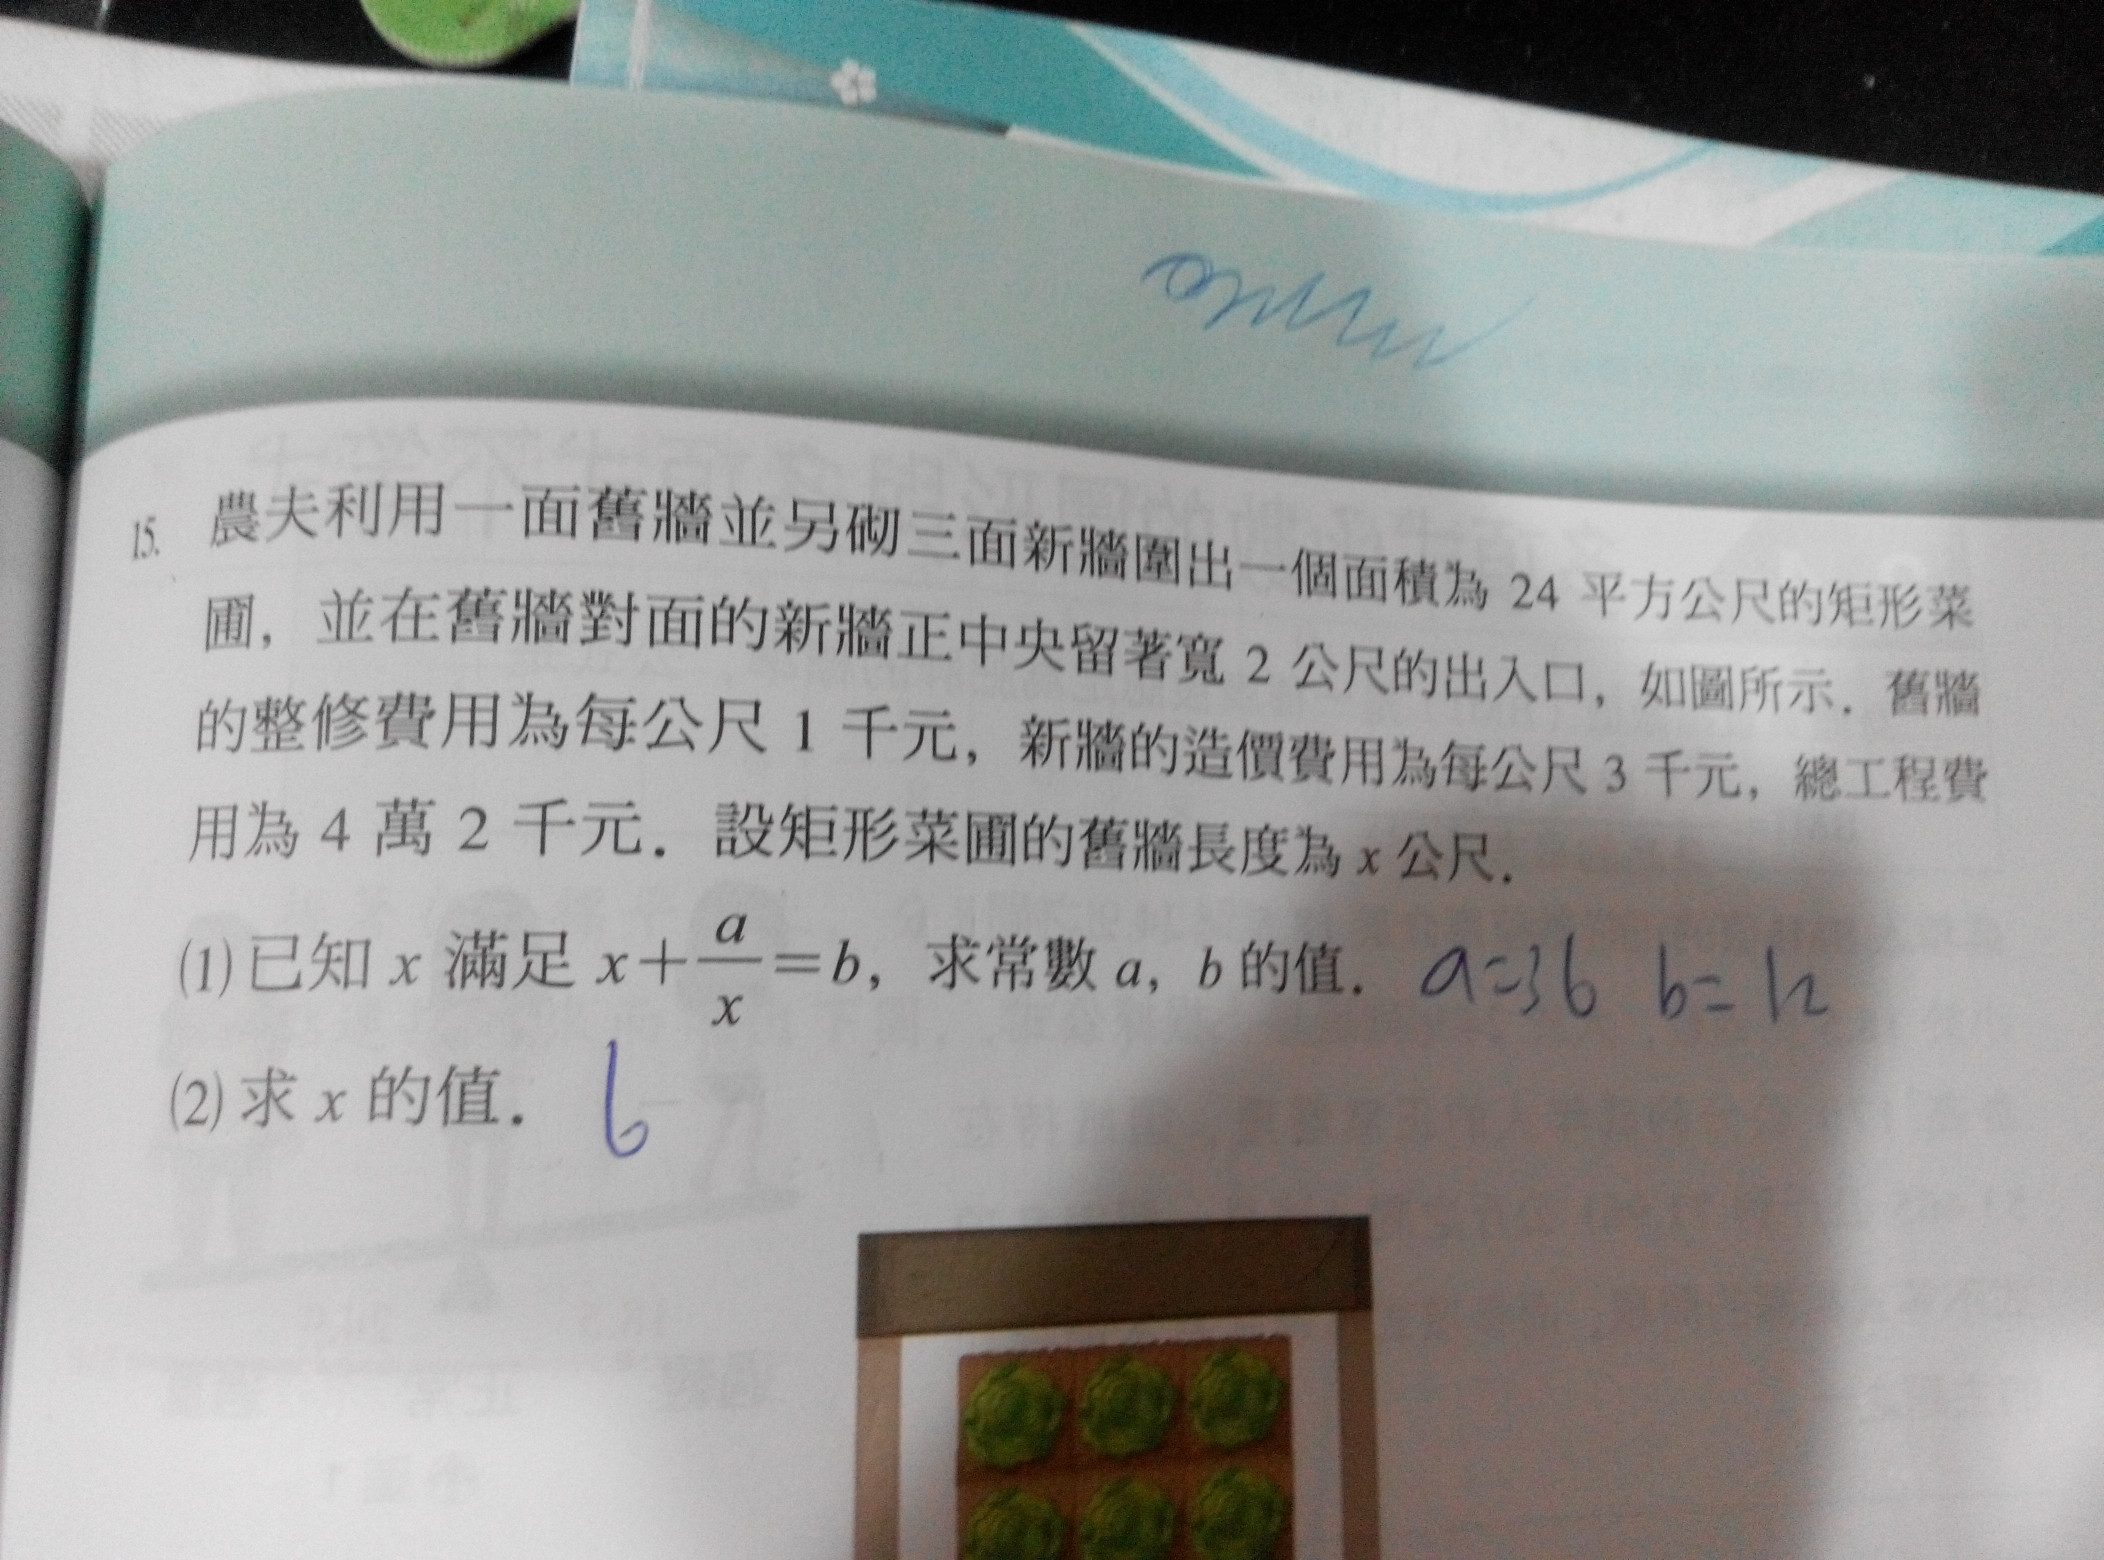 15. 農夫利用一面舊牆並另砌三面新牆圍出一個面積為 24 平方公尺的矩形菜
圃，並在舊牆對面的新牆正中央留著寬 2 公尺的出入口，如圖所示．舊牆
的整修費用為每公尺 1 千元，新牆的造價費用為每公尺 3 千元，總工程費
用為 4 萬 2 千元．設矩形菜圃的舊牆長度為 x 公尺．
(1) 已知 x 滿足 x+a/x=b，求常數 a，b 的值． a=36 b=12
(2) 求 x 的值． 6